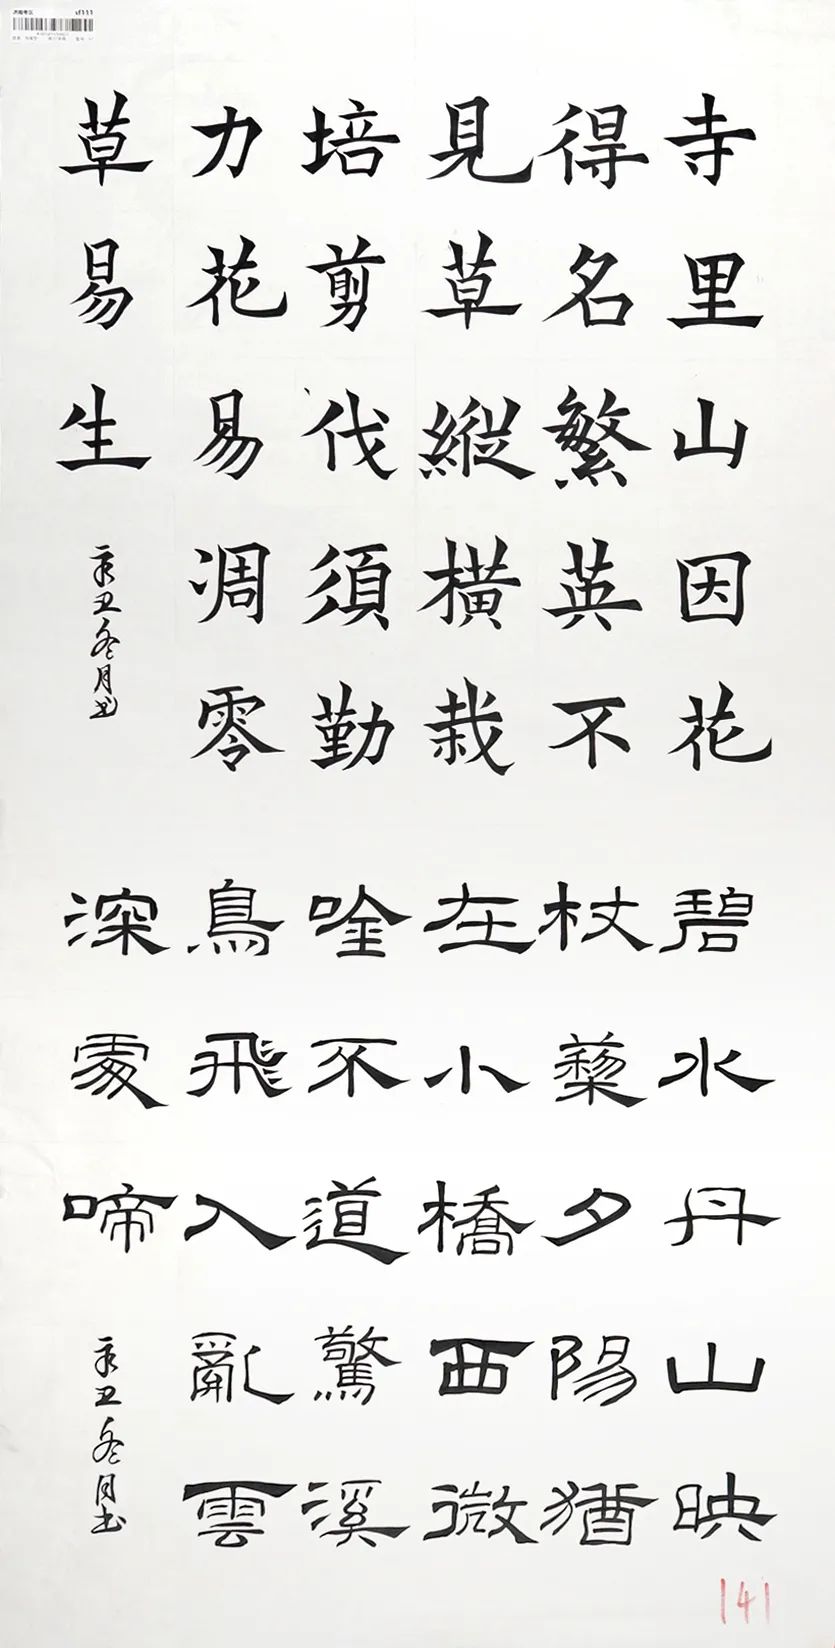 济南考区
sf111
寺里山因花
得名繁英不
見草縱橫栽
培剪伐須勤
力花易凋零
草易生
辛丑冬月书
碧水丹山映
杖藜夕陽猶
在小橋西微
唫不道驚溪
鳥飛入亂雲
深處啼
辛丑冬月书
141